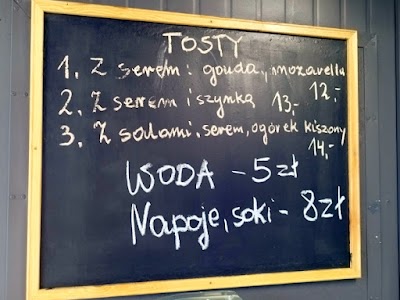 TOSTY
1. Z serem: gouda, mozarella
12,-
2. Z serem i szynką 13,-
3. Z salami, serem, ogórek kiszony
14,-
WODA - 5 zł
Napoje, soki - 8 zł